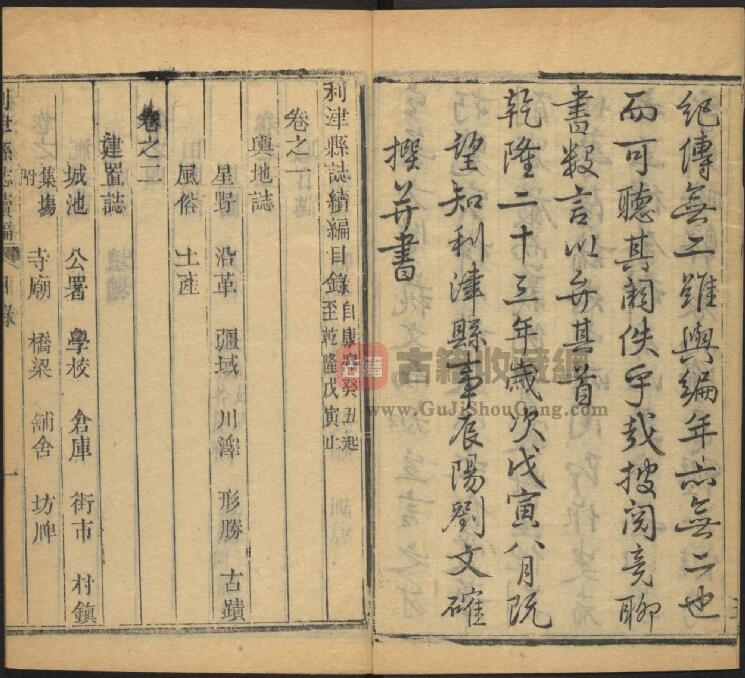 紀傳無二雖與編年亦無二也
而可聽其闕佚乎哉披閱竟聊
書數言以弁其首
乾隆二十三年歲次戊寅八月既
望知利津縣事辰陽劉文確
撰并書
利津縣誌續編目錄 自康熙癸丑起 至乾隆戊寅止
卷之一
輿地誌
星野 沿革 疆域 川澤 形勝 古蹟
風俗 土產
卷之二
建置誌
城池 公署 學校 倉庫 街市 村鎮
集場 附 寺廟 橋梁 舖舍 坊牌
利津縣志續編 目錄 一
古籍 古籍收藏網
www.GuJiShouCang.com